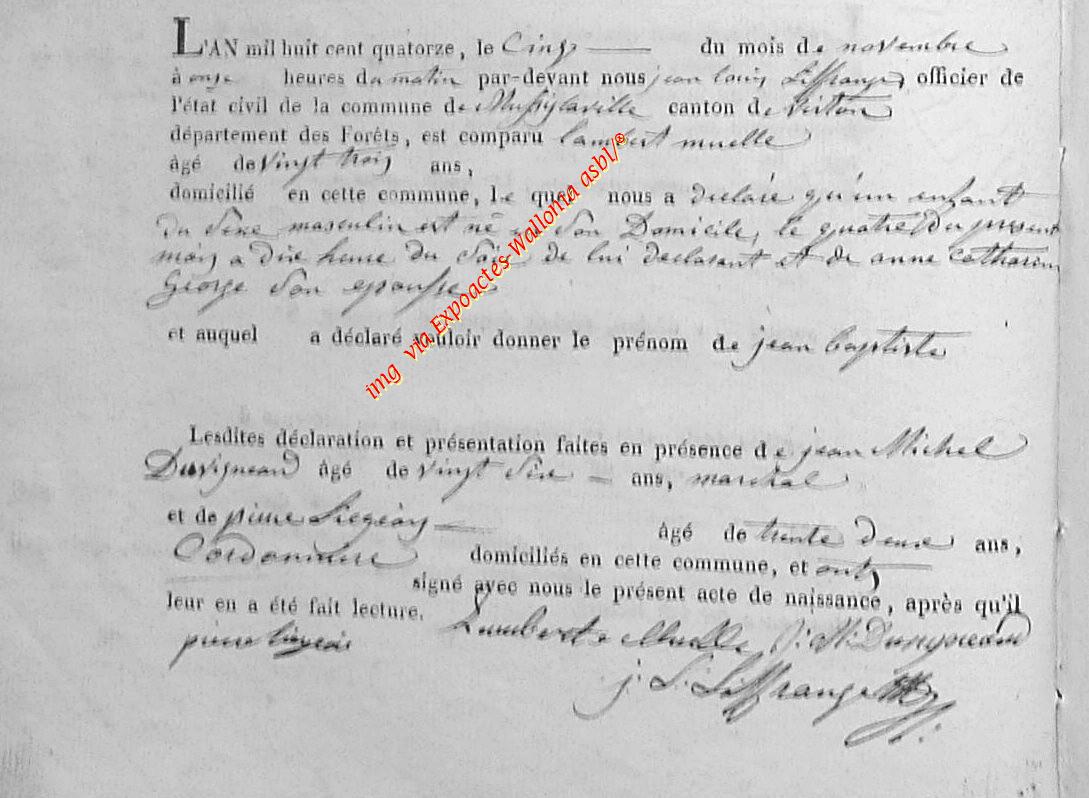 L'AN mil huit cent quatorze, le Cinq du mois de novembre
à onze heures du matin par-devant nous jean louis Liffrange, officier de
l'état civil de la commune de Mussylaville canton de virton
département des Forêts, est comparu lambert muelle
âgé de vingt trois ans,
domicilié en cette commune, le quel nous a declaré qu'un enfant
du Sexe masculin est né en Son Domicile, le quatre du present
mois a dix heure du Soir de lui declarant et de anne catharine
George Son epouse
et auquel a déclaré vouloir donner le prénom de jean baptiste
Lesdites déclaration et présentation faites en présence de jean Michel
Duvigneaud âgé de vingt Six ans, marchal
et de pierre Liegeois âgé de trente deux ans,
Cordonniere domiciliés en cette commune, et ont
signé avec nous le présent acte de naissance, après qu'il
leur en a été fait lecture. Lambert Muelle J: M: Duvigneaud
pierre liegeois
j: L: Liffrange
img via Expoactes-Wallonia asbl/®